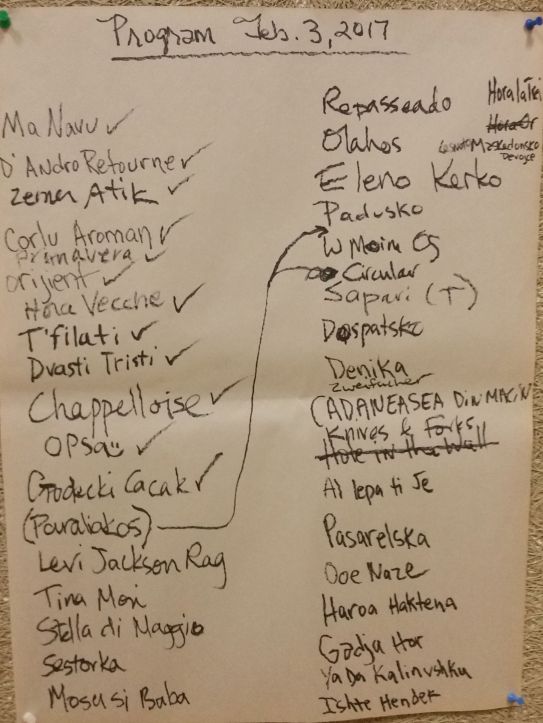 Program Feb. 3, 2017
Ma Navu ✓
D'Andro Retourne ✓
Zemer Atik ✓
Corlu Aroman ✓
Primavera ✓
Orijent ✓
Hora Vecche ✓
T'filati ✓
Dvasti Tristi ✓
Chappelloise ✓
OPSa ✓
Godecki Cacak ✓
(Paraliakos)
Levi Jackson Rag
Tina Mori
Stella di Maggio
Sestorka
Mosusi Baba
Repasseado
Hora la Trei
Olahos
Hora Or
Makedonsko Devojce
Eleno Kerko
Padusko
W Moim Og
Circular
Sapari (T)
Dospatsko
Denika
Zweifacher
CADANEASEA DiN MACIN
Knives & Forks
Hole in the Wall
Al lepa ti Je
Pasarelska
Ooe Naze
Haroa Haktena
Gadja Hor
Ya Da Kalinushku
Ishte Hendek